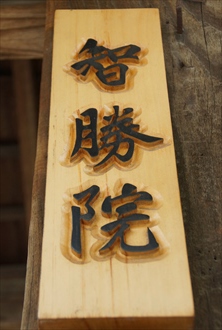 智勝院